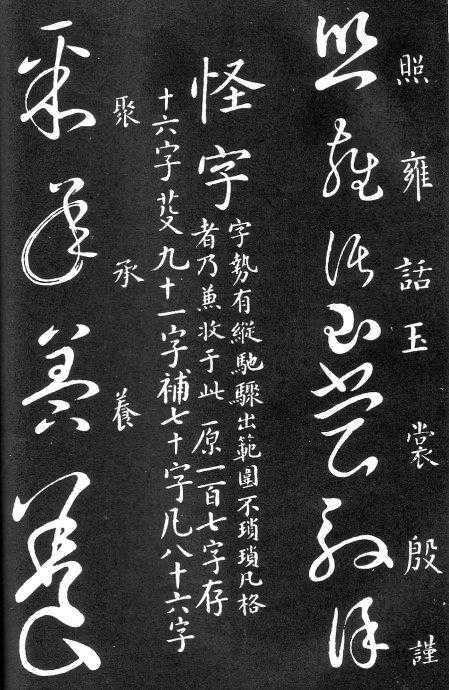 照 雍 話 玉 裳 殷 謹
怪字
字勢有縱馳驟出範圍不瑣瑣凡格
者乃兼收于此 原一百七字存
十六字芟九十一字補七十字凡八十六字
聚 承 養